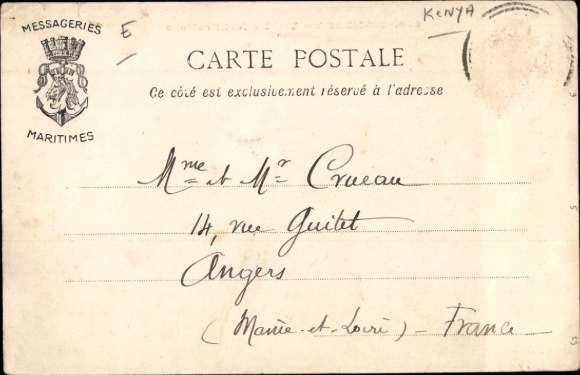 MESSAGERIES
MARITIMES
E
KENYA
CARTE POSTALE
Ce côté est exclusivement réservé à l'adresse
Mme et Mr Crueau
14, rue Guitet
Angers
(Maine-et-Loire) - France